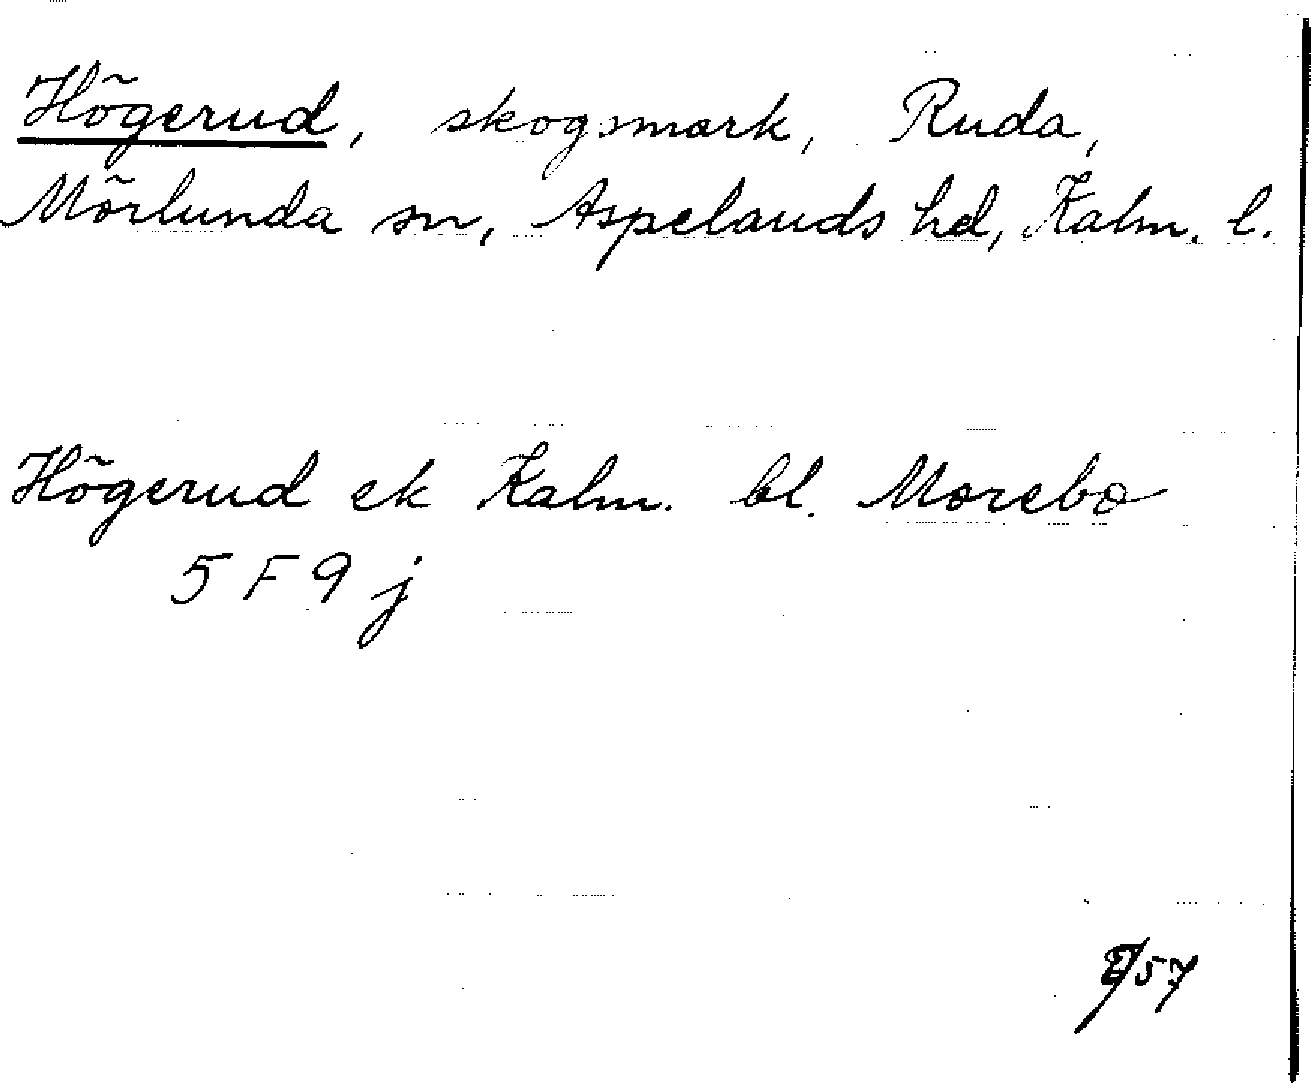 Högerud, skogsmark, Ruda,
Mörlunda sn, Aspelands hd, Kalm. l.
Högerud ek Kalm. bl. Morebo
5 F 9 j
57